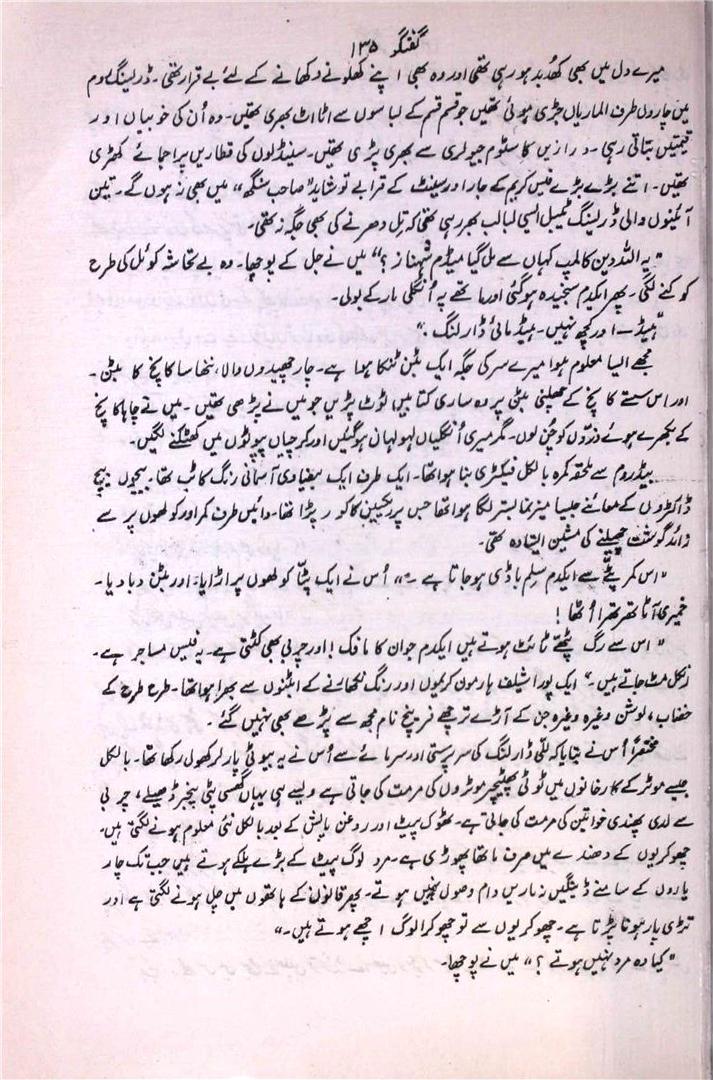 گفتگو ۱۳۵
میرے دل میں بھی کھُدبد ہو رہی تھی اور وہ بھی اپنے کھلونے دکھانے کے لئے بے قرار تھی۔ ڈرلینگ روم
میں چاروں طرف الماریاں جڑی ہوئی تھیں جو قسم قسم کے لباسوں سے اٹا اٹ بھری تھیں۔ وہ اُن کی خوبیاں اور
قیمتیں بتاتی رہی۔ درازیں کاسٹوم جیولری سے بھری پڑی تھیں۔ سینڈلوں کی قطاریں پرا جمائے کھڑی
تھیں۔ اتنے بڑے بڑے فیس کریم کے جار اور سینٹ کے قرابے تو شاید "صاحب سنگھ" میں بھی نہ ہوں گے۔ تین
آئینوں والی ڈرلینگ ٹیبل ایسی لبالب بھر رہی تھی کہ تِل دھرنے کی بھی جگہ نہ تھی۔
"یہ الٰہ دین کا لمپ کہاں سے مل گیا میڈم شہناز؟" میں نے جل کے پوچھا۔ وہ بے تحاشہ کوئل کی طرح
کوکنے لگی۔ پھر ایکدم سنجیدہ ہو گئی اور ماتھے پہ اُنگلی مار کے بولی۔
"ہیڈ۔ اور کچھ نہیں۔ ہیڈ مائی ڈارلنگ۔"
مجھے ایسا معلوم ہوا میرے سر کی جگہ ایک بٹن ٹنکا ہوا ہے۔ چار چھیدوں والا، ننھا سا کانچ کا بٹن۔
اور اس سستے کانچ کے چھلنی بٹن پر وہ ساری کتابیں ٹوٹ پڑیں جو میں نے پڑھی تھیں۔ میں نے چاہا کانچ
کے بکھرے ہوئے ذرّوں کو چُن لوں۔ مگر میری اُنگلیاں لہولہان ہو گئیں اور کرچیاں پپوٹوں میں کھٹکنے لگیں۔
بیڈ روم سے ملحقہ کمرہ بالکل فیکٹری بنا ہوا تھا۔ ایک طرف ایک بیضاوی آسمانی رنگ کا ٹب تھا۔ بیچوں بیچ
ڈاکٹروں کے معائنے جیسا میز نما بستر لگا ہوا تھا جس پر ریکسین کا کور پڑا تھا۔ دائیں طرف کمر اور کولھوں پر سے
زائد گوشت چھیلنے کی مشین ایستادہ تھی۔
"اس کمر پٹے سے ایکدم سلِم باڈی ہو جاتا ہے۔" اُس نے ایک پٹّا کولھوں پر اڑایا۔ اور بٹن دبا دیا۔
خمیری آٹا تھر تھرا اُٹھا!
"اس سے رگ پٹھّے ٹائٹ ہوتے ہیں ایکدم جوان کا مافک! اور چربی بھی کٹتی ہے۔ یہ فیس مساجر ہے۔
رنکل مٹ جاتے ہیں۔" ایک پورا شیلف ہارمون کریموں اور رنگ نکھارنے کے ابٹنوں سے بھرا ہوا تھا۔ طرح طرح کے
خضاب، لوشن وغیرہ وغیرہ جن کے آڑے ترچھے فرینچ نام مجھ سے پڑھے بھی نہیں گئے۔
مختصراً اُس نے بتایا کہ للّی ڈارلنگ کی سرپرستی اور سرمائے سے اُس نے یہ بیوٹی پارلر کھول رکھا تھا۔ بالکل
جیسے موٹر کے کارخانوں میں ٹوٹی پھٹیچر موٹروں کی مرمت کی جاتی ہے ویسے ہی یہاں گھسی پٹی پنجر ڈھیلے، چربی
سے لدی پھندی خواتین کی مرمت کی جاتی ہے۔ ٹھوک پیٹ اور روغن پالش کے بعد بالکل نئی معلوم ہونے لگتی ہیں۔
چھوکریوں کے دھندے میں صرف ماتھا پھوڑی ہے۔ مرد لوگ پیٹ کے بڑے ہلکے ہوتے ہیں جب تک چار
یاروں کے سامنے ڈینگیں نہ ماریں دام وصول نہیں ہوتے۔ پھر قانون کے ہاتھوں میں چل ہونے لگتی ہے اور
تڑی پار ہونا پڑتا ہے۔ چھوکریوں سے تو چھوکرا لوگ اچھے ہوتے ہیں۔"
"کیا وہ مرد نہیں ہوتے؟" میں نے پوچھا۔